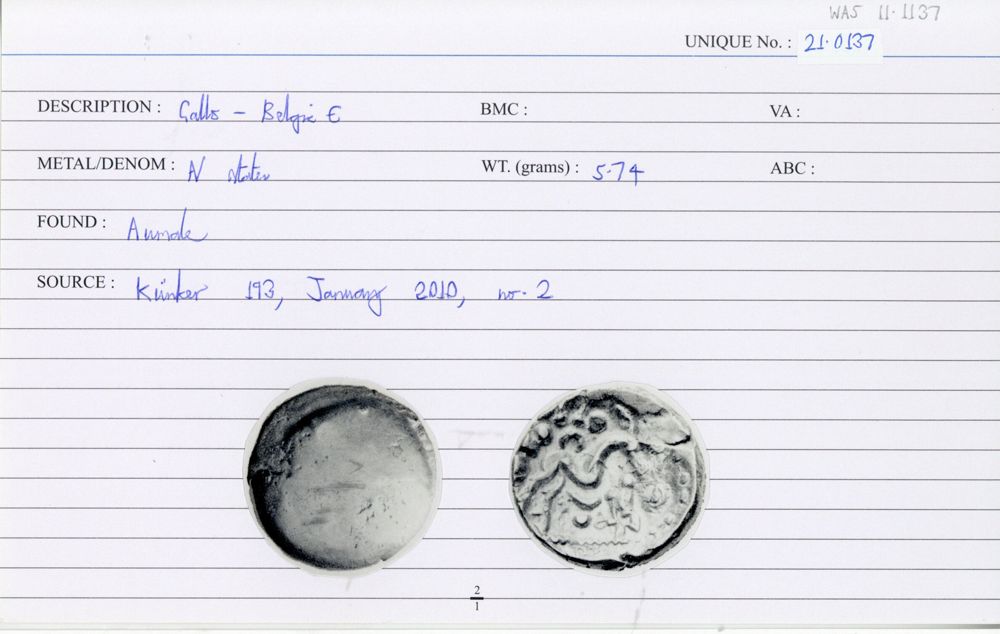 WAS 11.1137
UNIQUE No. : 21.0137
DESCRIPTION : Gallo - Belgic E BMC : VA :
METAL/DENOM : AV stater WT. (grams) : 5.74 ABC :
FOUND : Aumale
SOURCE : Künker 193, January 2010, no. 2
2
1